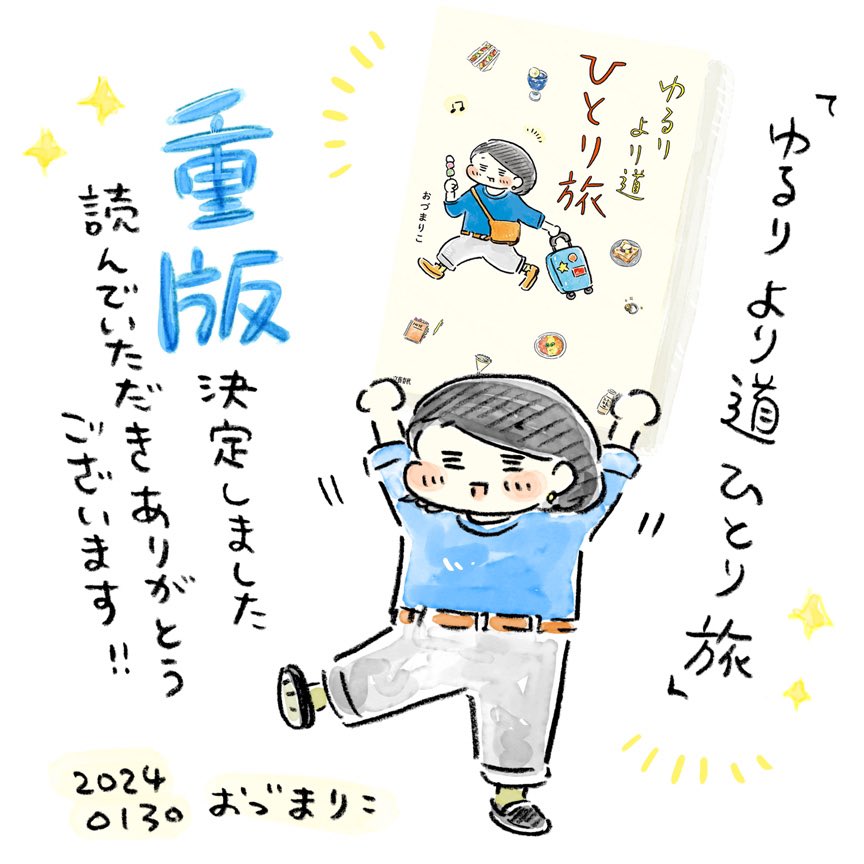 「ゆるり より道 ひとり旅」
ゆるり
より道
ひとり旅
おづまりこ
重版
決定しました
読んでいただきありがとう
ございます!!
2024
0130
おづまりこ